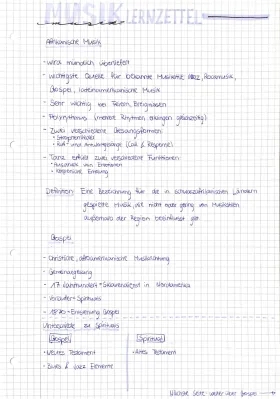 MUSIK LERNZETTEL
Afrikanische Musik
- wird mündlich überliefert
- wichtigste Quelle für bekannte Musikstile Jazz, Rockmusik,
Gospel, lateinamerikanische Musik
- Sehr wichtig bei Feiern, Ereignissen
- Polyrhythmus (mehrere Rhythmen erklingen gleichzeitig)
- Zwei verschiedene Gesangsformen
• Ruf- und Antwortgesänge (Call & Response)
- Tanz erfüllt zwei verschiedene Funktionen
• Ausdruck von Emotionen
• Religiosität, Erholung
Definition: Eine Bezeichnung für die in schwarzafrikanischen Ländern
gespielte Musik, die nicht oder gering von Musikarten
außerhalb der Region beeinflusst ist
Gospel
- Christliche, afroamerikanische Musikrichtung
- Gemeindegesang
- 17. Jahrhundert → Sklavendienst in Nordamerika
- Vorläufer → Spirituals
- 1930 → Entstehung Gospel
Unterschiede zu Spirituals
Gospel
Spiritual
- Neues Testament
- Altes Testament
- Blues & Jazz Elemente
Nächste Seite weiter über Genres →